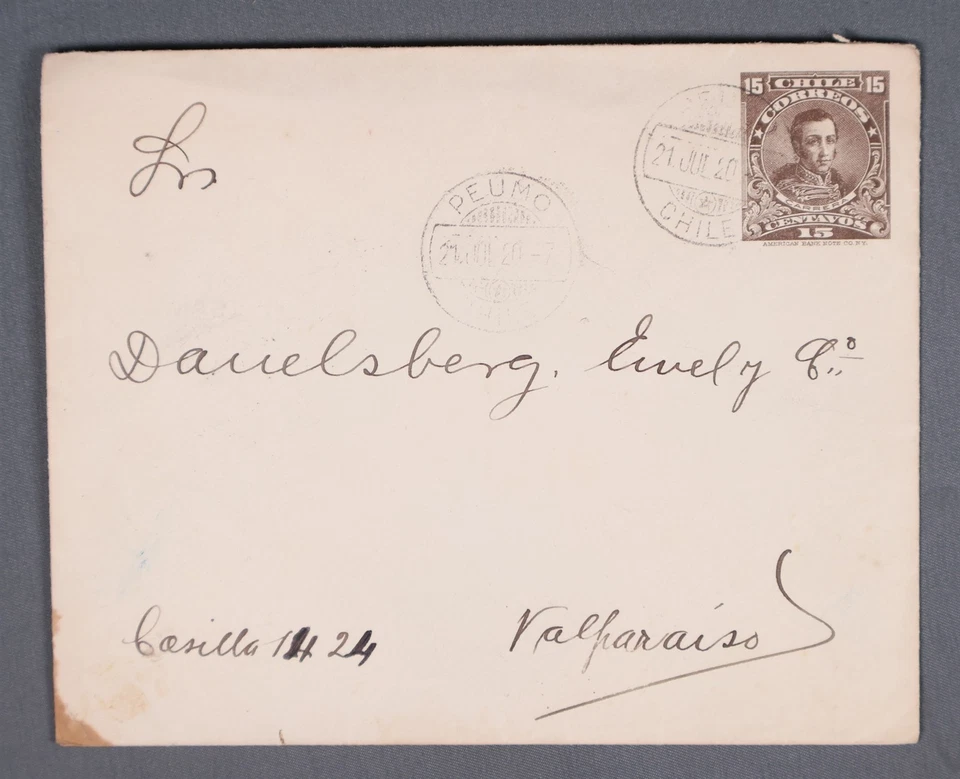 15 CHILE 15
CORREOS
CARRERA
CENTAVOS
15
AMERICAN BANK NOTE CO. N.Y.
21 JUL 20
CHILE
PEUMO
21 JUL 20 - 7
Srs
Danelsberg,
Casilla 1424 Valparaiso